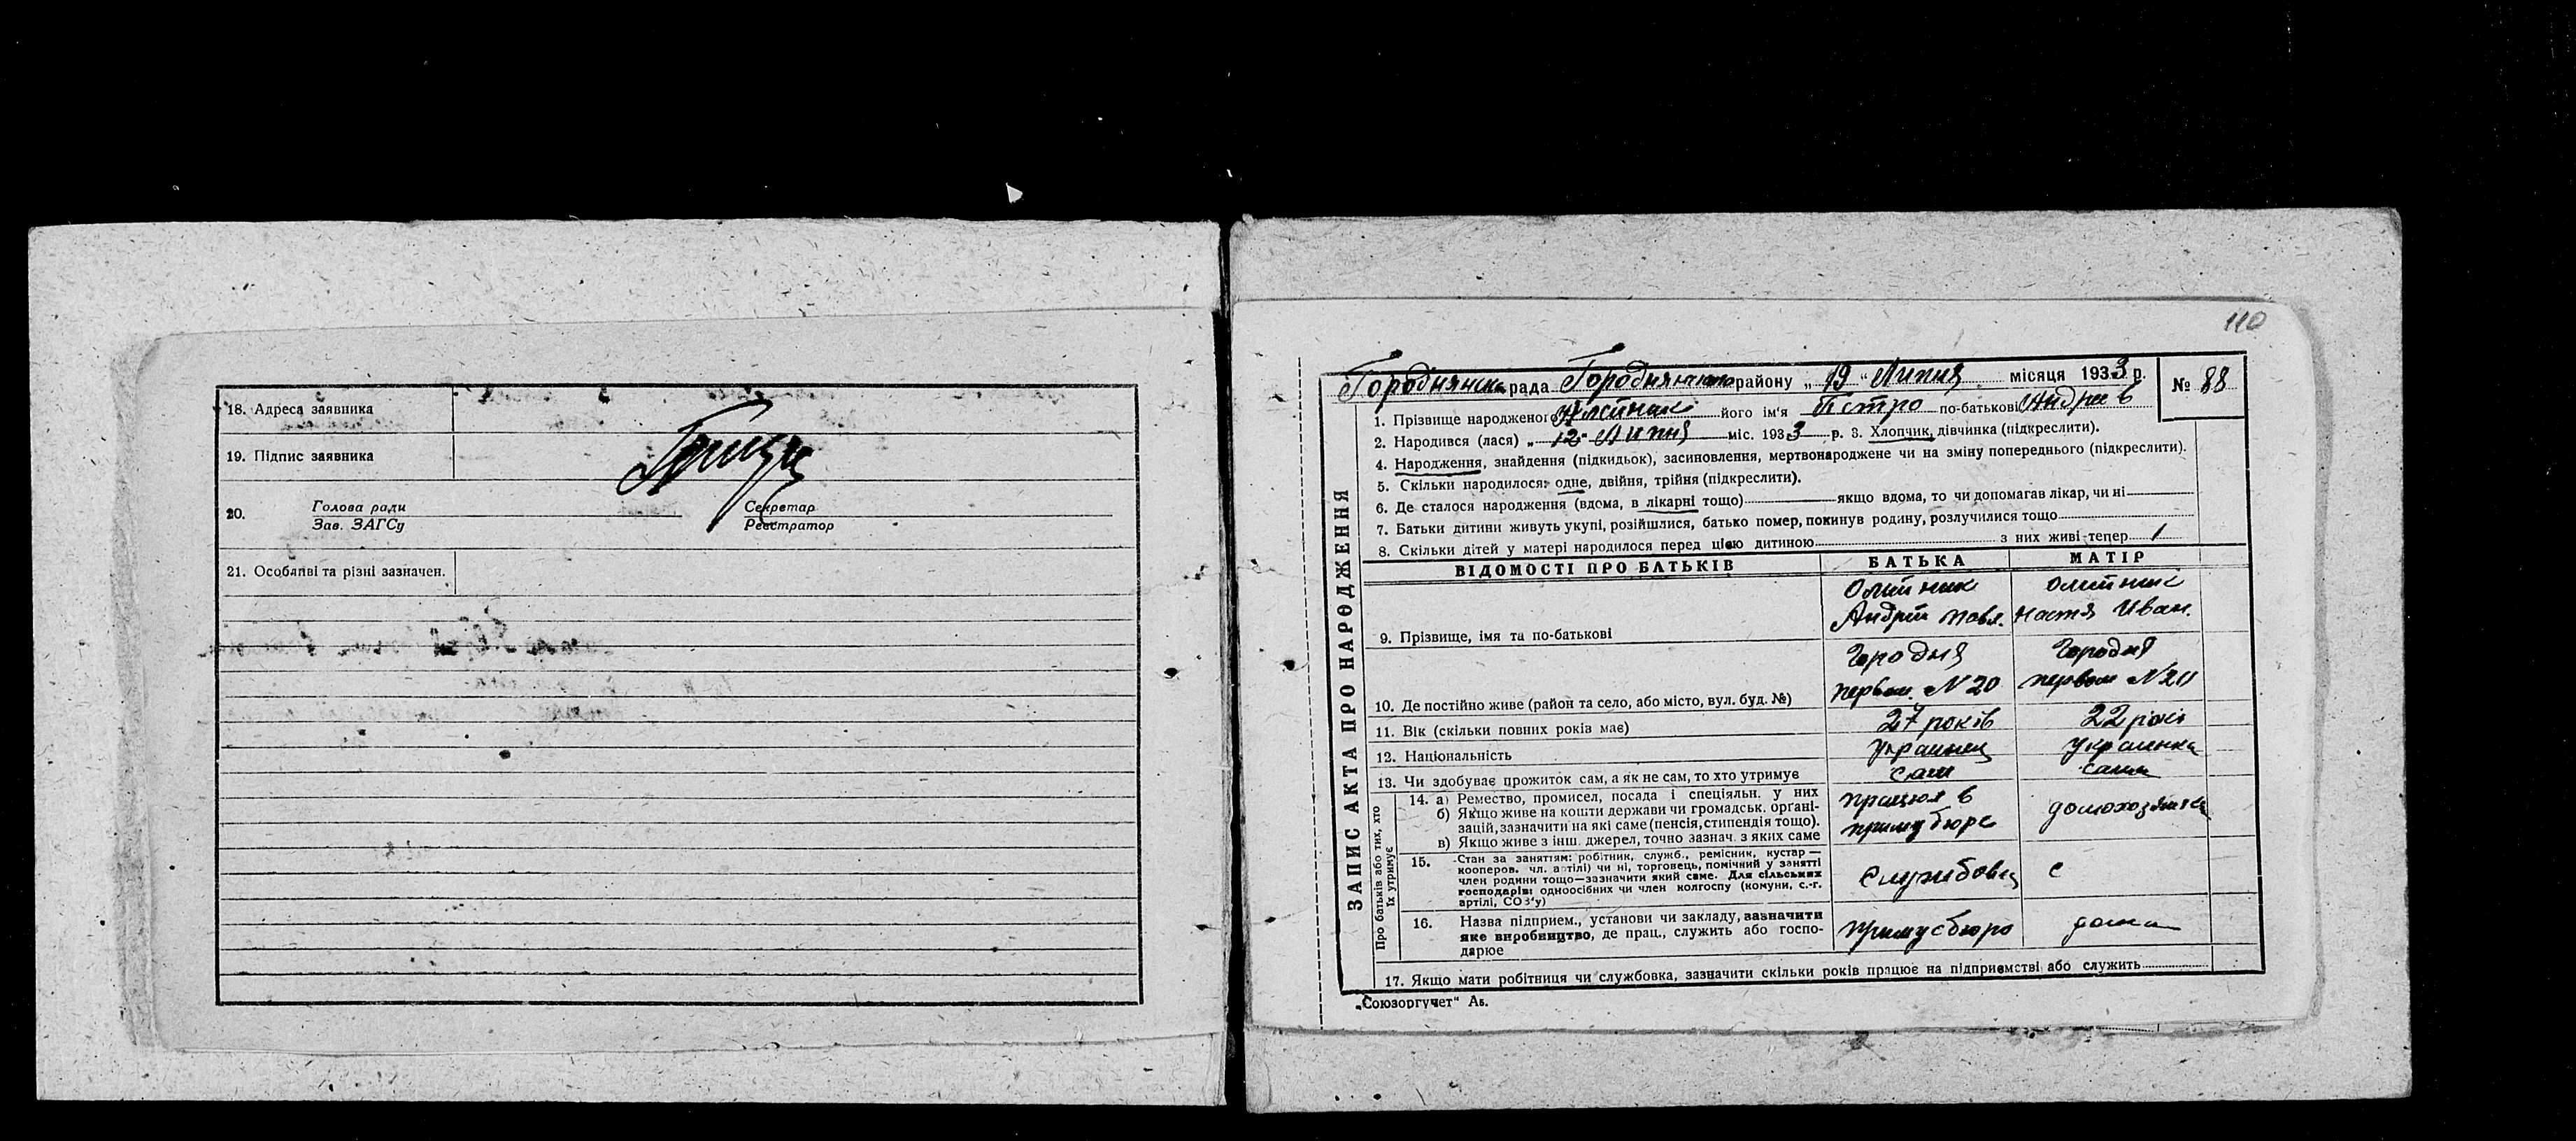 18. Адреса заявника
19. Підпис заявника
20. Голова ради Секретар
Зав. ЗАГСу Реєстратор
21. Особливі та різні зазначен.
110
ЗАПИС АКТА ПРО НАРОДЖЕННЯ
Городнянська рада Городнянського району „19“ Липня місяця 1933 р. № 88
1. Прізвище народженого Олійник його ім'я Петро по-батькові Андреев
2. Народився (лася) „12“ Липня міс. 1933 р. 3. Хлопчик, дівчинка (підкреслити).
4. Народження, знайдення (підкидьок), засиновлення, мертвонароджене чи на зміну попереднього (підкреслити).
5. Скільки народилося: одне, двійня, трійня (підкреслити).
6. Де сталося народження (вдома, в лікарні тощо) якщо вдома, то чи допомагав лікар, чи ні
7. Батьки дитини живуть укупі, розійшлися, батько помер, покинув родину, розлучилися тощо
8. Скільки дітей у матері народилося перед цією дитиною з них живі тепер 1
ВІДОМОСТІ ПРО БАТЬКІВ БАТЬКА МАТІР
Олійник Олійник
9. Прізвище, імя та по-батькові Андрій Павл. Настя Иван.
Городня Городня
10. Де постійно живе (район та село, або місто, вул. буд. №) первом. N 20 первом N 20
11. Вік (скільки повних років має) 27 років 22 рокі
12. Національність Украинец Украинка
13. Чи здобуває прожиток сам, а як не сам, то хто утримує сам сама
Про батьків або тих, хто їх утримує
14. а) Ремество, промисел, посада і спеціяльн. у них працюя в
б) Якщо живе на кошти держави чи громадськ. органі- примусбюро домохозяйка
зацій, зазначити на які саме (пенсія, стипендія тощо).
в) Якщо живе з інш. джерел, точно зазнач. з яких саме
15. Стан за заняттям: робітник, служб., ремісник, кустар —
кооперов. чл. артілі) чи ні, торговець, помічний у занятті
член родини тощо—зазначити який саме. Для сільських Службовец с
господарів: одноосібних чи член колгоспу (комуни, с.-г.
артілі, СОЗ'у)
16. Назва підприєм., установи чи закладу, зазначити
яке виробництво, де прац., служить або госпо- примусбюро дома
дарює
17. Якщо мати робітниця чи службовка, зазначити скільки років працює на підприємстві або служить
„Союзоргучет“ Аб.